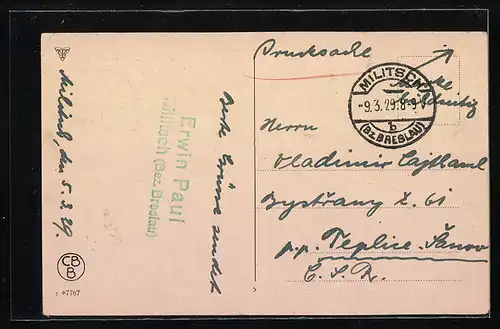 Militsch, den 5.3.29.
Beste Grüsse sendet
Erwin Paul
Militsch (Bez. Breslau)
CB
B
67767
Drucksache
MILITSCH
-9.3.29.8-9
b
(Bz. BRESLAU)
Marke
bildseitig
Herrn
Vladimir
Bystřany z. 61
p.p. Teplice-Šanov
Č.S.R.